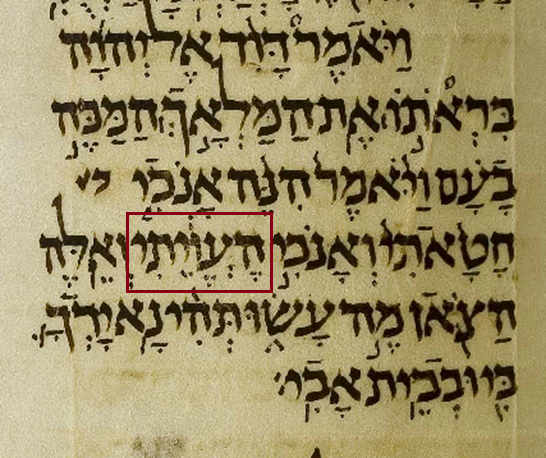 וַיֹּאמֶר דָּוִד אֶל יְהוָה
בִּרְאֹתוֹ אֶת הַמַּלְאָךְ הַמַּכֶּה
בָעָם וַיֹּאמֶר הִנֵּה אָנֹכִי
חָטָאתִי וְאָנֹכִי הֶעֱוֵיתִי וְאֵלֶּה
הַצֹּאן מֶה עָשׂוּ תְּהִי נָא יָדְךָ
בִּי וּבְבֵית אָבִי׃